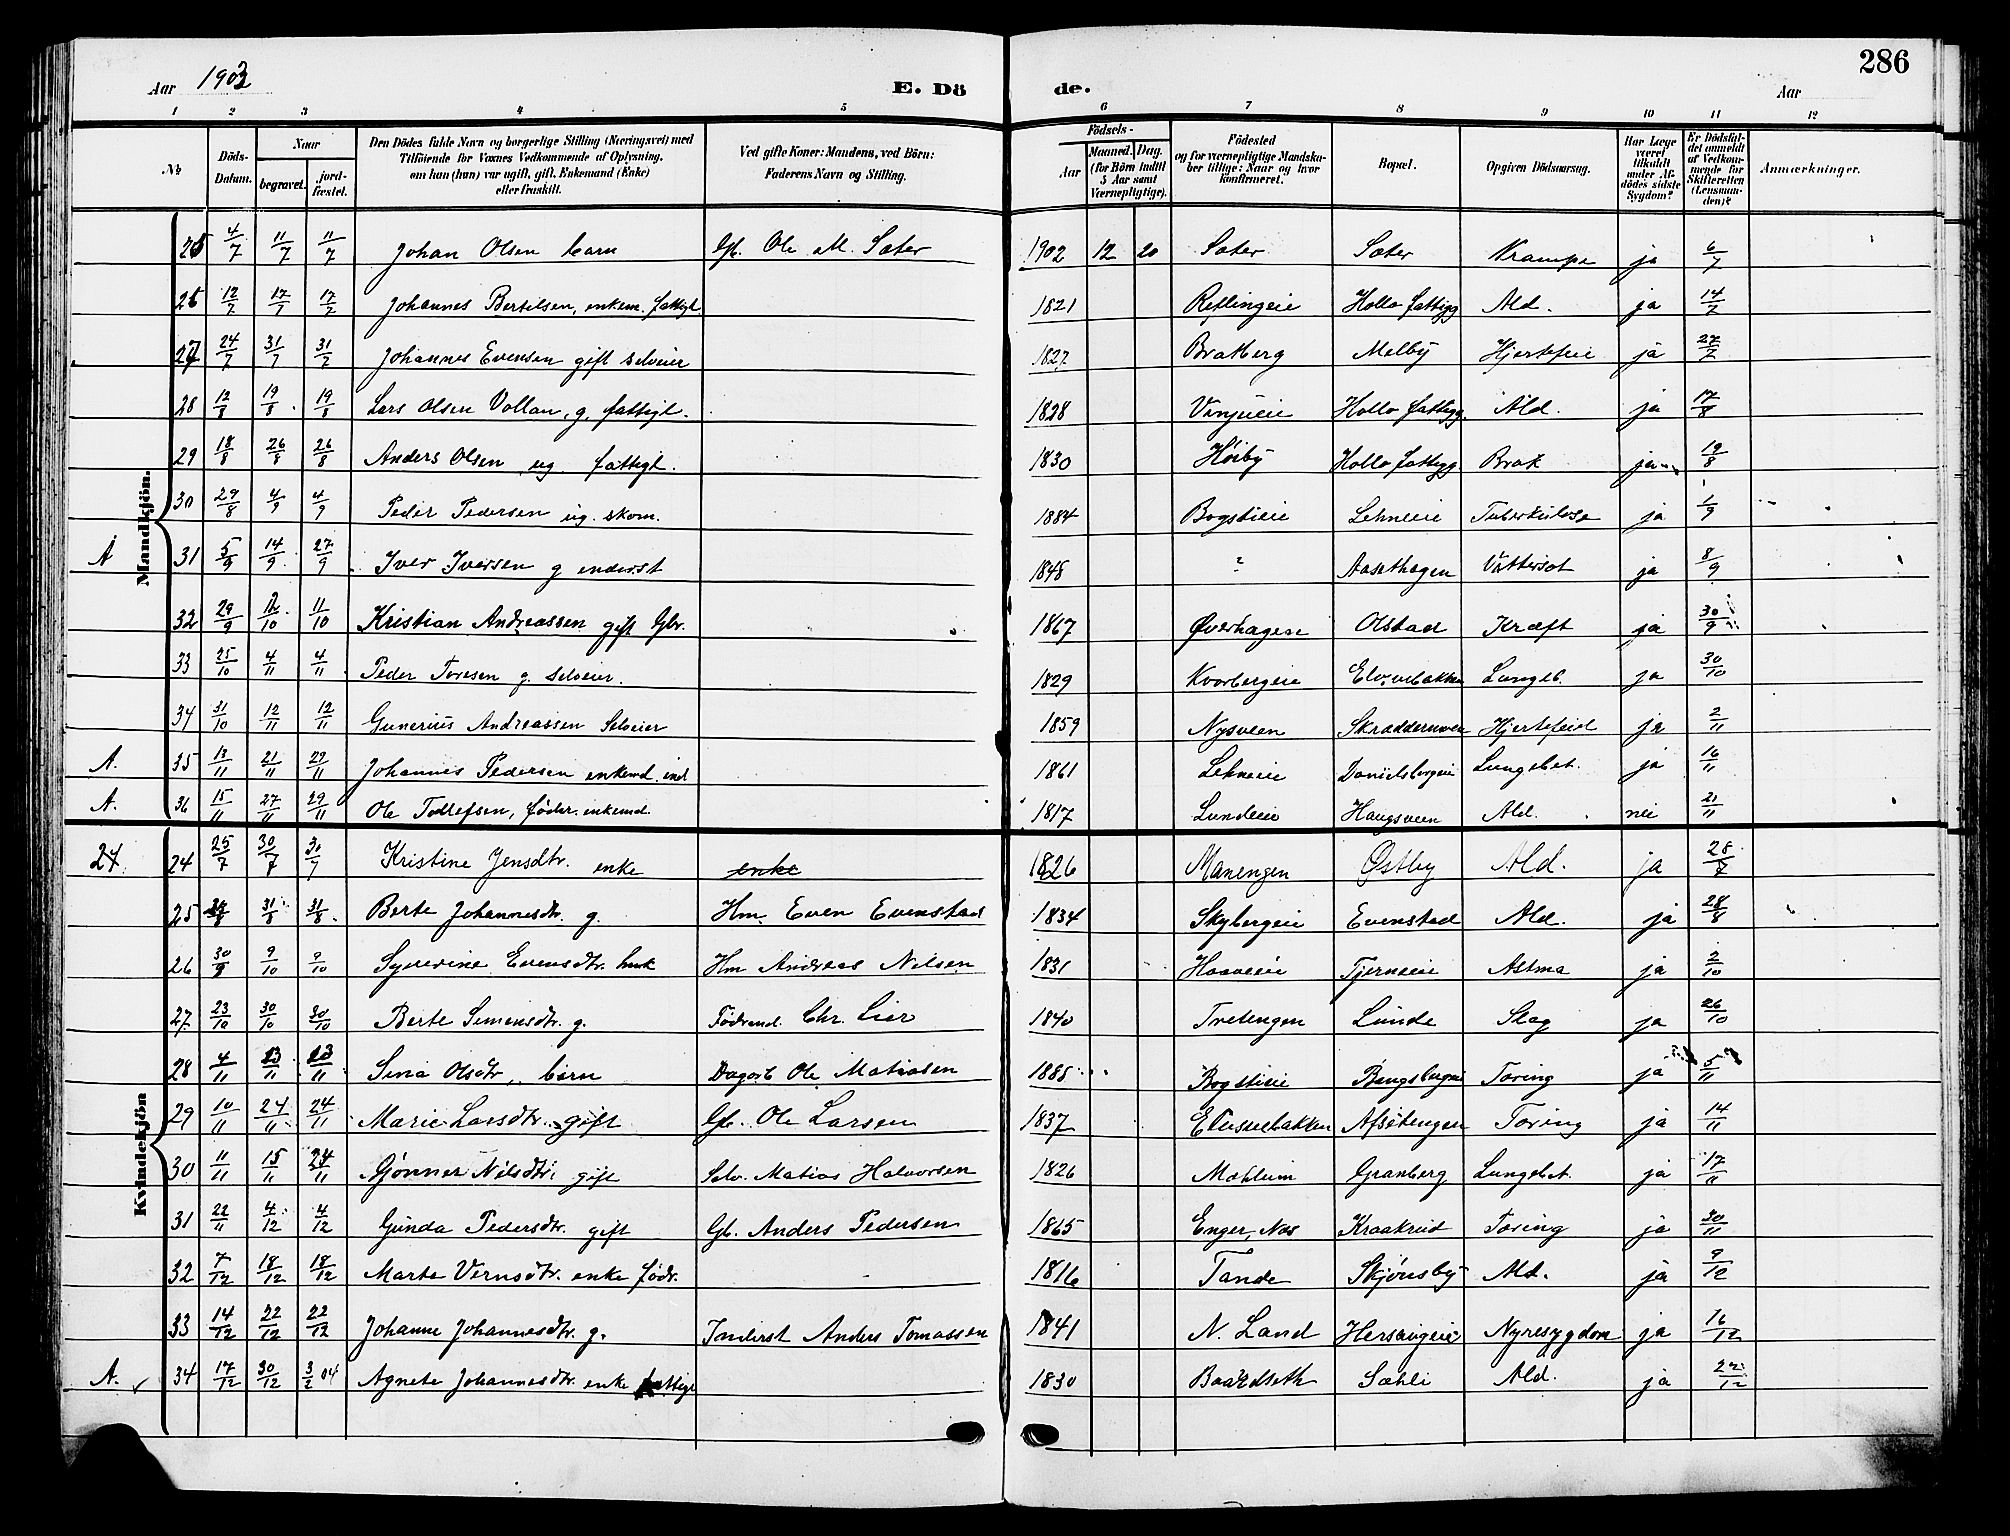 286
Aar 1903 E. Dö de. Aar
1 2 3 4 5 6 7 8 9 10 11 12
No. Döds-Datum. Naar begravet. jordfæstet. Den Dödes fulde Navn og borgerlige Stilling (Næringsvei) med Tilföiende for Voxnes Vedkommende af Oplysning, om han (hun) var ugift, gift, Enkemand (Enke) eller fraskilt. Ved gifte Koner: Mandens, ved Börn: Faderens Navn og Stilling. Födsels- Aar Maaned. Dag. (for Börn indtil 5 Aar samt Værnepligtige). Födested og for værnepligtige Mandskaber tillige: Naar og hvor konfirmeret. Bopæl. Opgiven Dödsaarsag. Har Læge været tilkaldt under Afdödes sidste Sygdom? Er Dödsfaldet anmeldt af Vedkommende for Skifteretten (Lensmanden)? Anmærkninger.
Mandkjön.
25 4/7 11/7 11/7 Johan Olsen barn Gb. Ole M. Sæter 1902 12 20 Sæter Sæter Krampe ja 6/7
26 12/7 17/7 17/7 Johannes Bertelsen, enkem. fattigl. 1821 Reflingeie Hollo fattigg Ald. ja 14/7
27 24/7 31/7 31/7 Johannes Evensen gift selveier 1827 Bratberg Melby Hjertefeil ja 27/7
28 12/8 19/8 19/8 Lars Olsen Vollan, g. fattigl. 1828 Vinjueie Hollo fattigg. Ald. ja 17/8
29 18/8 26/8 26/8 Anders Olsen ug. fattigl. 1830 Höiby Hollo fattigg Brok ja 19/8
30 29/8 4/9 4/9 Peder Pedersen ug. skom. 1884 Bogstieie Lehneeie Tuberkulose ja 1/9
A 31 5/9 14/9 27/9 Iver Iversen g inderst 1848 ? Aasethagen Vattersot ja 8/9
32 29/9 11/10 11/10 Kristian Andreassen gift Gbr. 1867 Øverhagen Olstad Kræft ja 30/9
33 25/10 4/11 4/11 Peder Toresen g. selveier. 1829 Kvarbergeie Lungeb. ja 30/10
34 31/10 12/11 12/11 Gunerius Andreassen Selveier 1859 Nysveen Skrædderuveen Hjertefeil ja 2/11
A. 35 13/11 21/11 29/11 Johannes Pedersen enkemd. ind 1861 Lehneeie Danielsbergeie Lungebet. ja 16/11
A. 36 15/11 27/11 29/11 Ole Tollefsen, föder. enkemd. 1817 Lundeie Haugsveen Ald. nei 21/11
Kvindekjön
24 24 25/7 30/7 30/7 Kristine Jensdtr. enke enke 1826 Manengen Østby Ald. ja 28/7
25 31/8 31/8 Berte Johannesdtr. g. Hm. Even Evenstad 1834 Skybergeie Evenstad Ald. ja 28/8
26 30/9 9/10 9/10 Syverine Evensdtr. Hm Andreas Nilsen 1831 Haaveeie Tjerneeie Astma ja 2/10
27 23/10 30/10 30/10 Berte Simensdtr. g. Födrmd. Chr. Lier 1840 Tretengen Lunde Slag ja 26/10
28 4/11 13/11 13/11 Sina Olsdtr, barn Dagarb Ole Matiasen 1885 Bogstieie Bangsbergeie Tæring ja 5/11
29 10/11 24/11 24/11 Marie Larsdtr. gift Gb. Ole Larsen 1837 Afsetengen Tæring ja 14/11
30 11/11 15/11 24/11 Gjønner Nilsdtr. gift Selv. Matias Halvorsen 1826 Mæhlum Granberg Lungebet. ja 17/11
31 22/11 4/12 4/12 Gunda Pedersdtr. gift Gb. Anders Pedersen 1865 Enger, Næs Kraakrud Tæring ja 30/11
32 7/12 18/12 18/12 Marte Vernsdtr. enke födr. 1816 Tande Skjønsby Ald. ja 9/12
33 14/12 22/12 22/12 Johanne Johannesdtr. g. Inderst Anders Tomassen 1841 N. Land Hersaugeie Nyresygdom ja 16/12
A. 34 17/12 30/12 3/2 04 Agnete Johannesdtr. enke fattigl 1830 Baardseth Sæhli Ald. ja 22/12